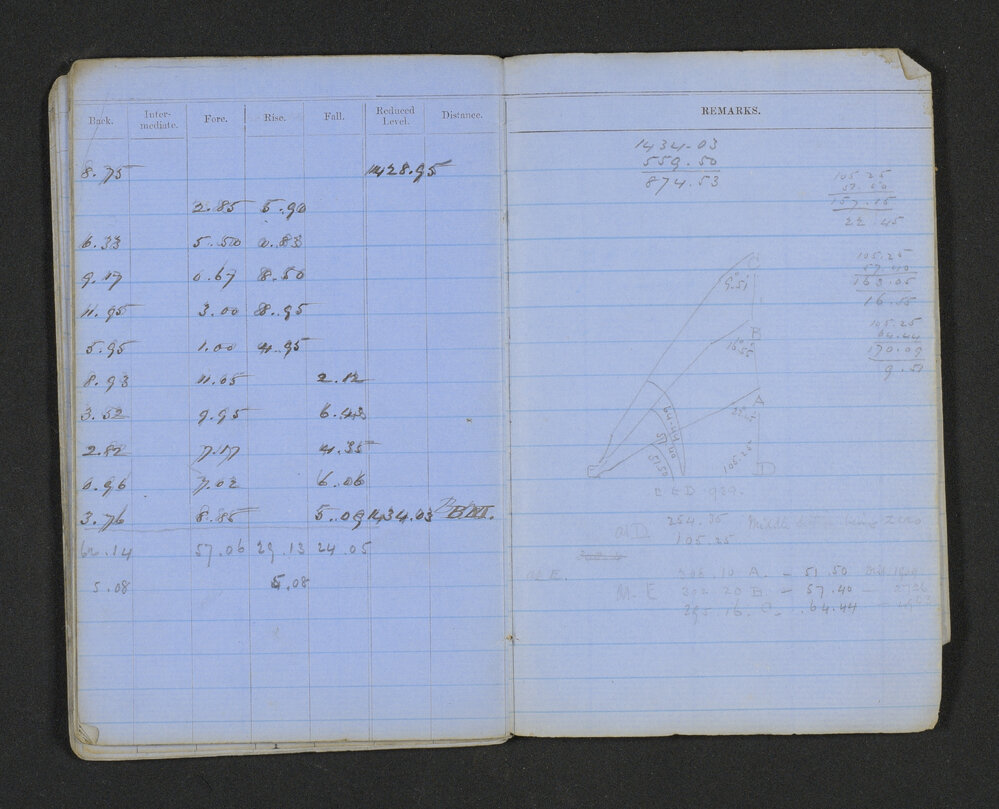 Back. Inter-mediate. Fore. Rise. Fall. Reduced Level. Distance.
8.75 1428.95
2.85 5.90
6.33 5.50 0.83
9.17 0.67 8.50
11.95 3.00 8.95
5.95 1.00 4.95
8.93 11.05 2.12
3.52 9.95 6.43
2.82 7.17 4.35
0.96 7.02 6.06
3.76 8.85 5.09 1434.03
62.14 57.06 29.13 24.05
5.08 5.08
REMARKS.
1434.03
559.50
874.53
105.25
51.50
157.15
22.45
105.25
57.40
163.05
16.55
105.25
64.44
170.09
9.51
9.51
B
16.55
A
22.45
64.44
57.40
51.50
105.25
D
at D
105.25
Zero
A. - 51.50
M. E 302.20 B. - 57.40
C. 64.44